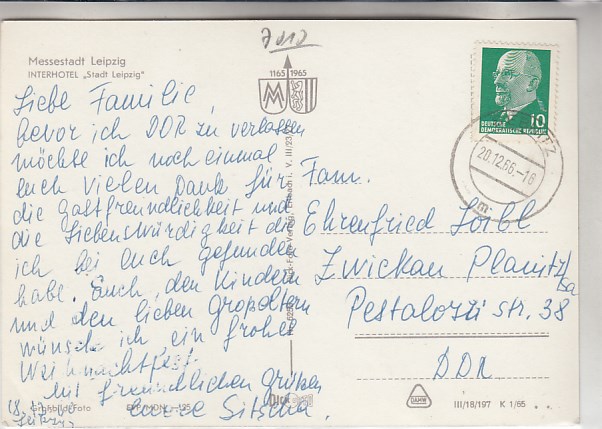 7012
Messestadt Leipzig
INTERHOTEL „Stadt Leipzig"
1165 1965
10
DEUTSCHE
DEMOKRATISCHE REPUBLIK
20.12.66.-18
m
Liebe Familie,
bevor ich DDR zu verlassen
möchte ich noch einmal
euch vielen Dank für
die Gastfreundlichkeit und
die Liebenswürdigkeit die
ich bei euch gefunden
habe. Euch, den Kindern
und den lieben Großeltern
wünsche ich ein frohes
Weihnachtsfest.
Mit freundlichen Grüßen
eure
Fam.
Ehrenfried
Zwickau Planitz
Pestalozzi str. 38
DDR
V. III/23/
Foto
DAMW
III/18/197 K 1/65